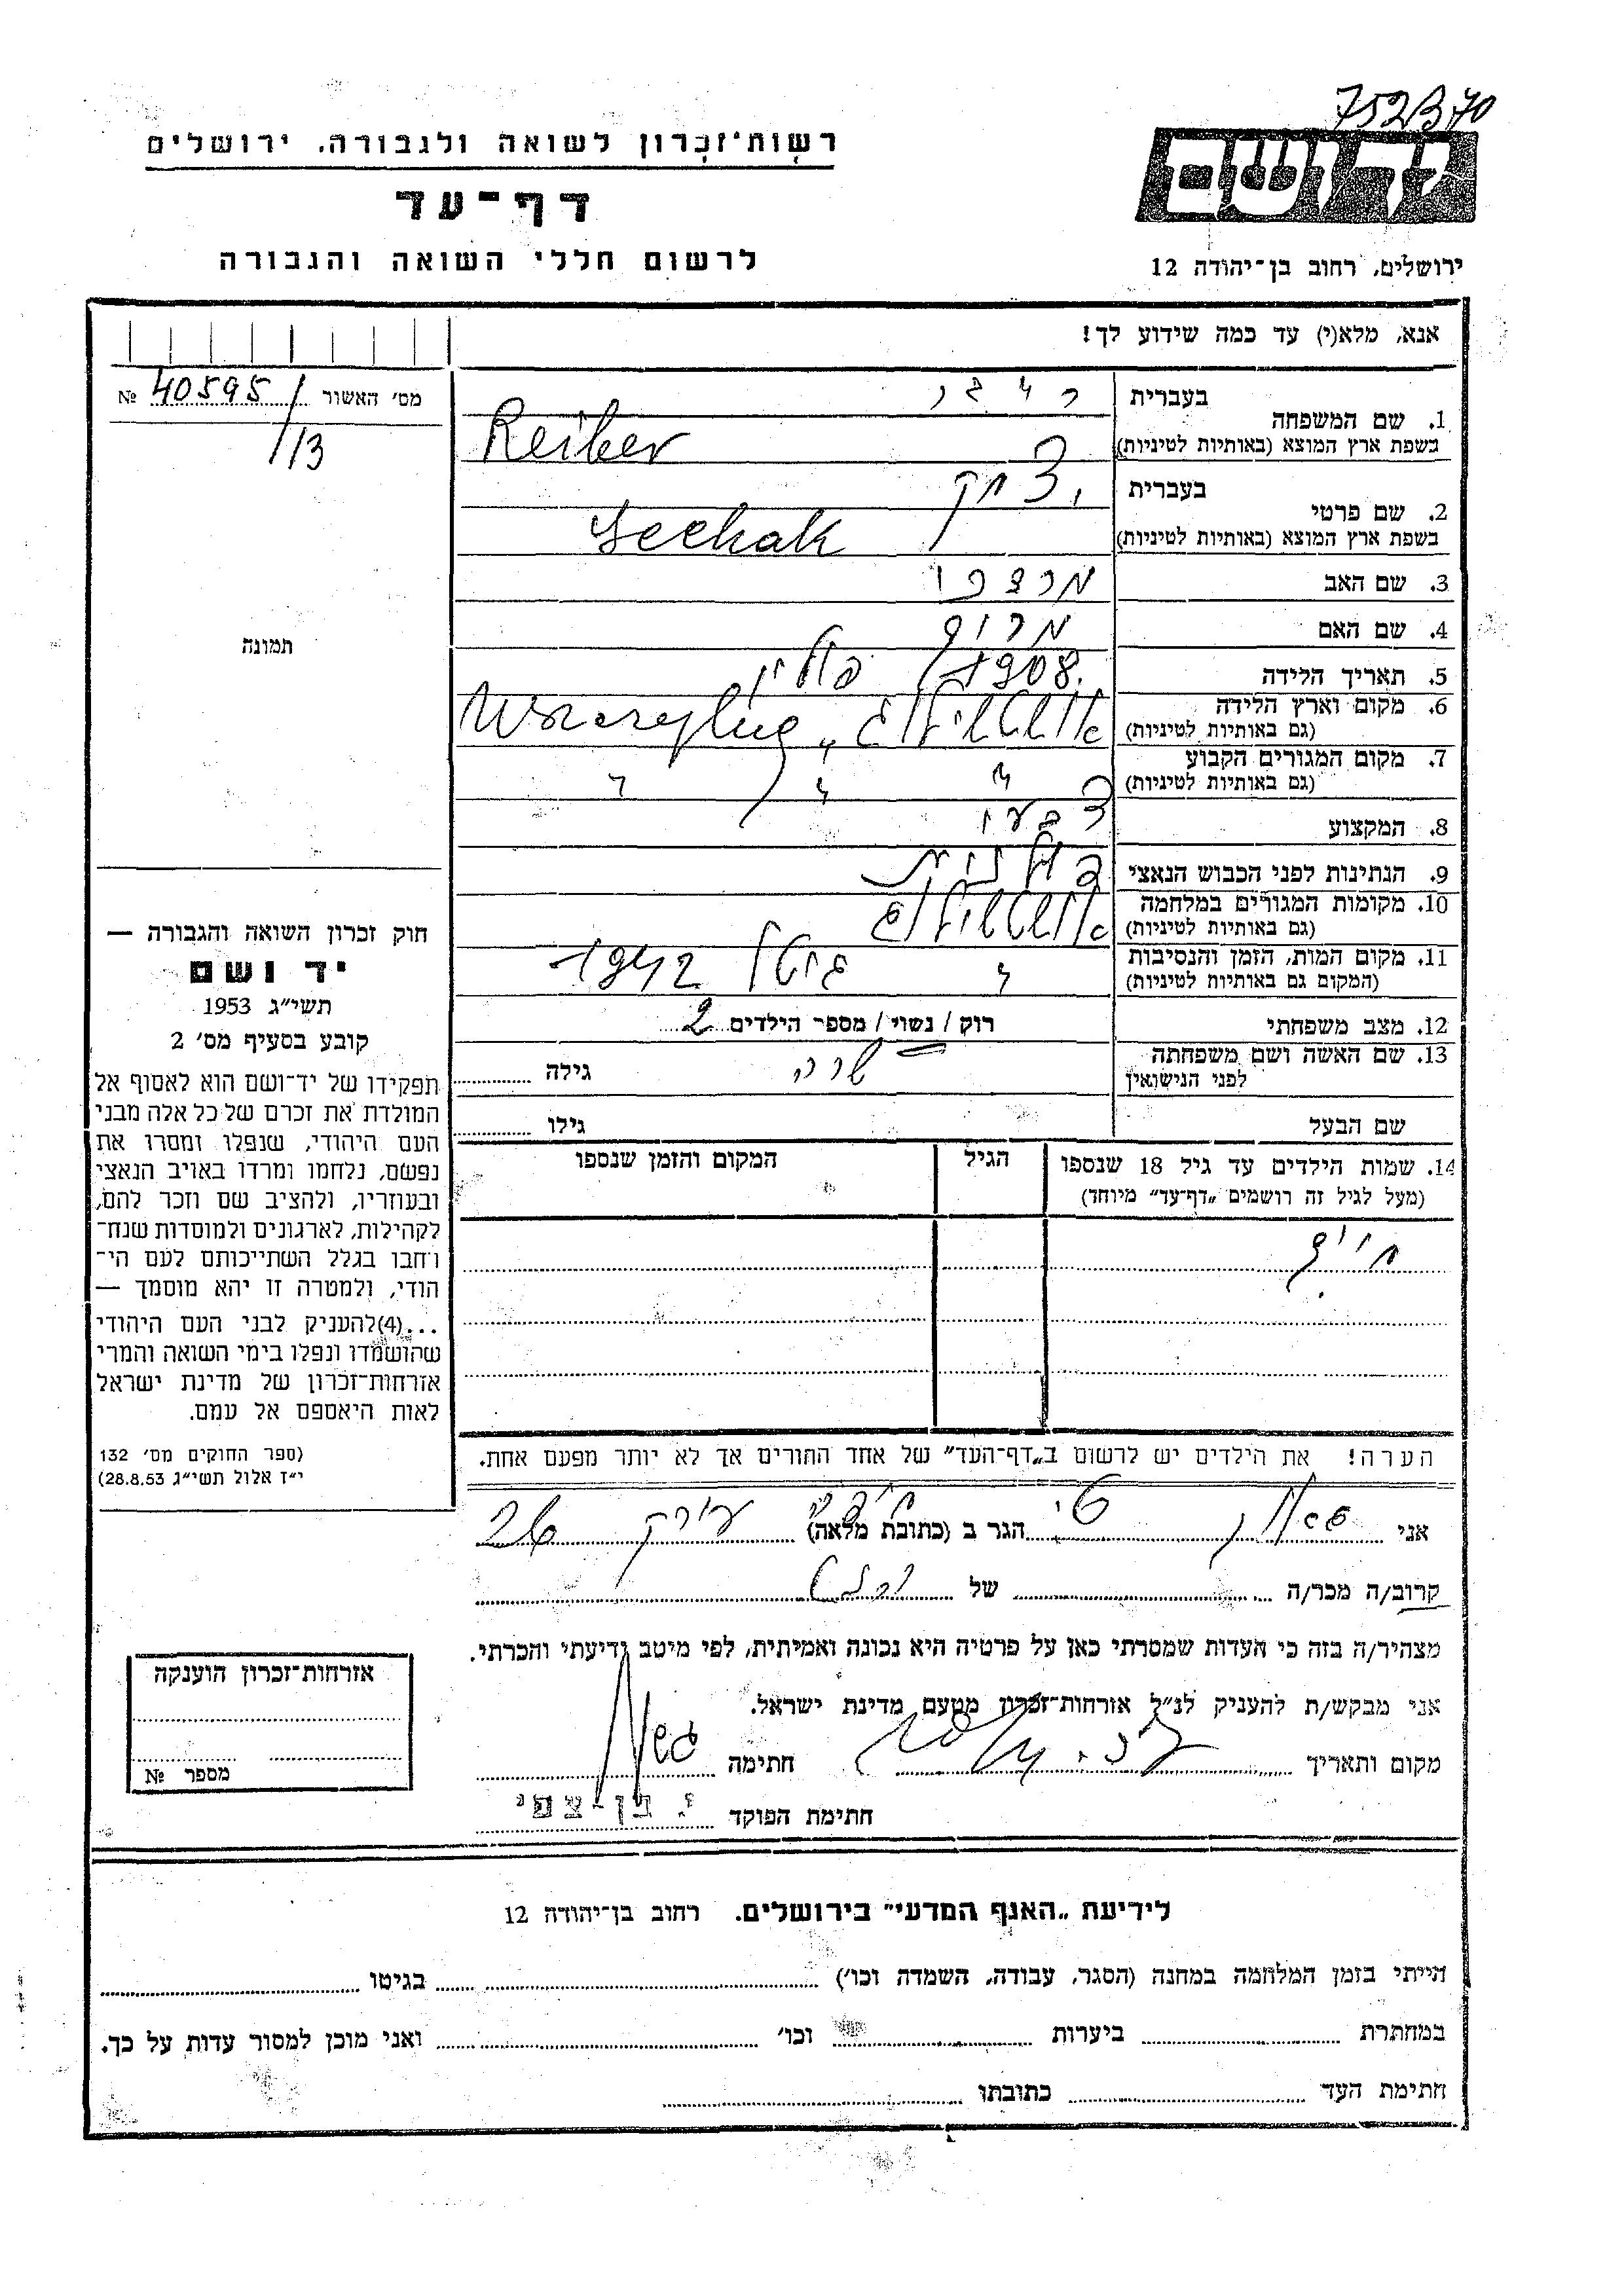 752/370
רשות־זכרון לשואה ולגבורה, ירושלים
דף־עד
לרשום חללי השואה והגבורה
יד ושם
ירושלים, רחוב בן־יהודה 12
אנא, מלא(י) עד כמה שידוע לך!
מס׳ האשור 40595 №
/13
תמונה
1. שם המשפחה
בעברית רייבר
בשפת ארץ המוצא (באותיות לטיניות) Reiber
2. שם פרטי
בעברית יצחק
בשפת ארץ המוצא (באותיות לטיניות) Yeehak
3. שם האב
4. שם האם
5. תאריך הלידה 1908. פולין
6. מקום וארץ הלידה
(גם באותיות לטיניות)
7. מקום המגורים הקבוע
(גם באותיות לטיניות) " " "
8. המקצוע
9. הנתינות לפני הכבוש הנאצי פולנית
10. מקומות המגורים במלחמה
(גם באותיות לטיניות)
11. מקום המות, הזמן והנסיבות
(המקום גם באותיות לטיניות) " 1942
12. מצב משפחתי רוק / נשוי / מספר הילדים 2
13. שם האשה ושם משפחתה
לפני הנישואין שרה גילה
שם הבעל גילו
14. שמות הילדים עד גיל 18 שנספו
(מעל לגיל זה רושמים „דף־עד״ מיוחד)
הגיל
המקום והזמן שנספו
הערה! את הילדים יש לרשום ב„דף־העד״ של אחד ההורים אך לא יותר מפעם אחת.
חוק זכרון השואה והגבורה —
יד ושם
תשי״ג 1953
קובע בסעיף מס׳ 2
תפקידו של יד־ושם הוא לאסוף אל
המולדת את זכרם של כל אלה מבני
העם היהודי, שנפלו ומסרו את
נפשם, נלחמו ומרדו באויב הנאצי
ובעוזריו, ולהציב שם וזכר להם,
לקהילות, לארגונים ולמוסדות שנח־
רחבו בגלל השתייכותם לעם הי־
הודי, ולמטרה זו יהא מוסמך —
...(4)להעניק לבני העם היהודי
שהושמדו ונפלו בימי השואה והמרי
אזרחות־זכרון של מדינת ישראל
לאות היאספם אל עמם.
(ספר החוקים מס׳ 132
י״ז אלול תשי״ג 28.8.53)
אני הגר ב (כתובת מלאה) חיפה
קרוב/ה מכר/ה של
מצהיר/ה בזה כי העדות שמסרתי כאן על פרטיה היא נכונה ואמיתית, לפי מיטב ידיעתי והכרתי.
אני מבקש/ת להעניק לנ״ל אזרחות־זכרון מטעם מדינת ישראל.
מקום ותאריך חתימה
חתימת הפוקד י. בן־צפי
אזרחות־זכרון הוענקה
מספר №
לידיעת „האנף המדעי״ בירושלים. רחוב בן־יהודה 12
הייתי בזמן המלחמה במחנה (הסגר, עבודה, השמדה וכו׳) בגיטו
במחתרת ביערות וכו׳ ואני מוכן למסור עדות על כך.
חתימת העד כתובתו